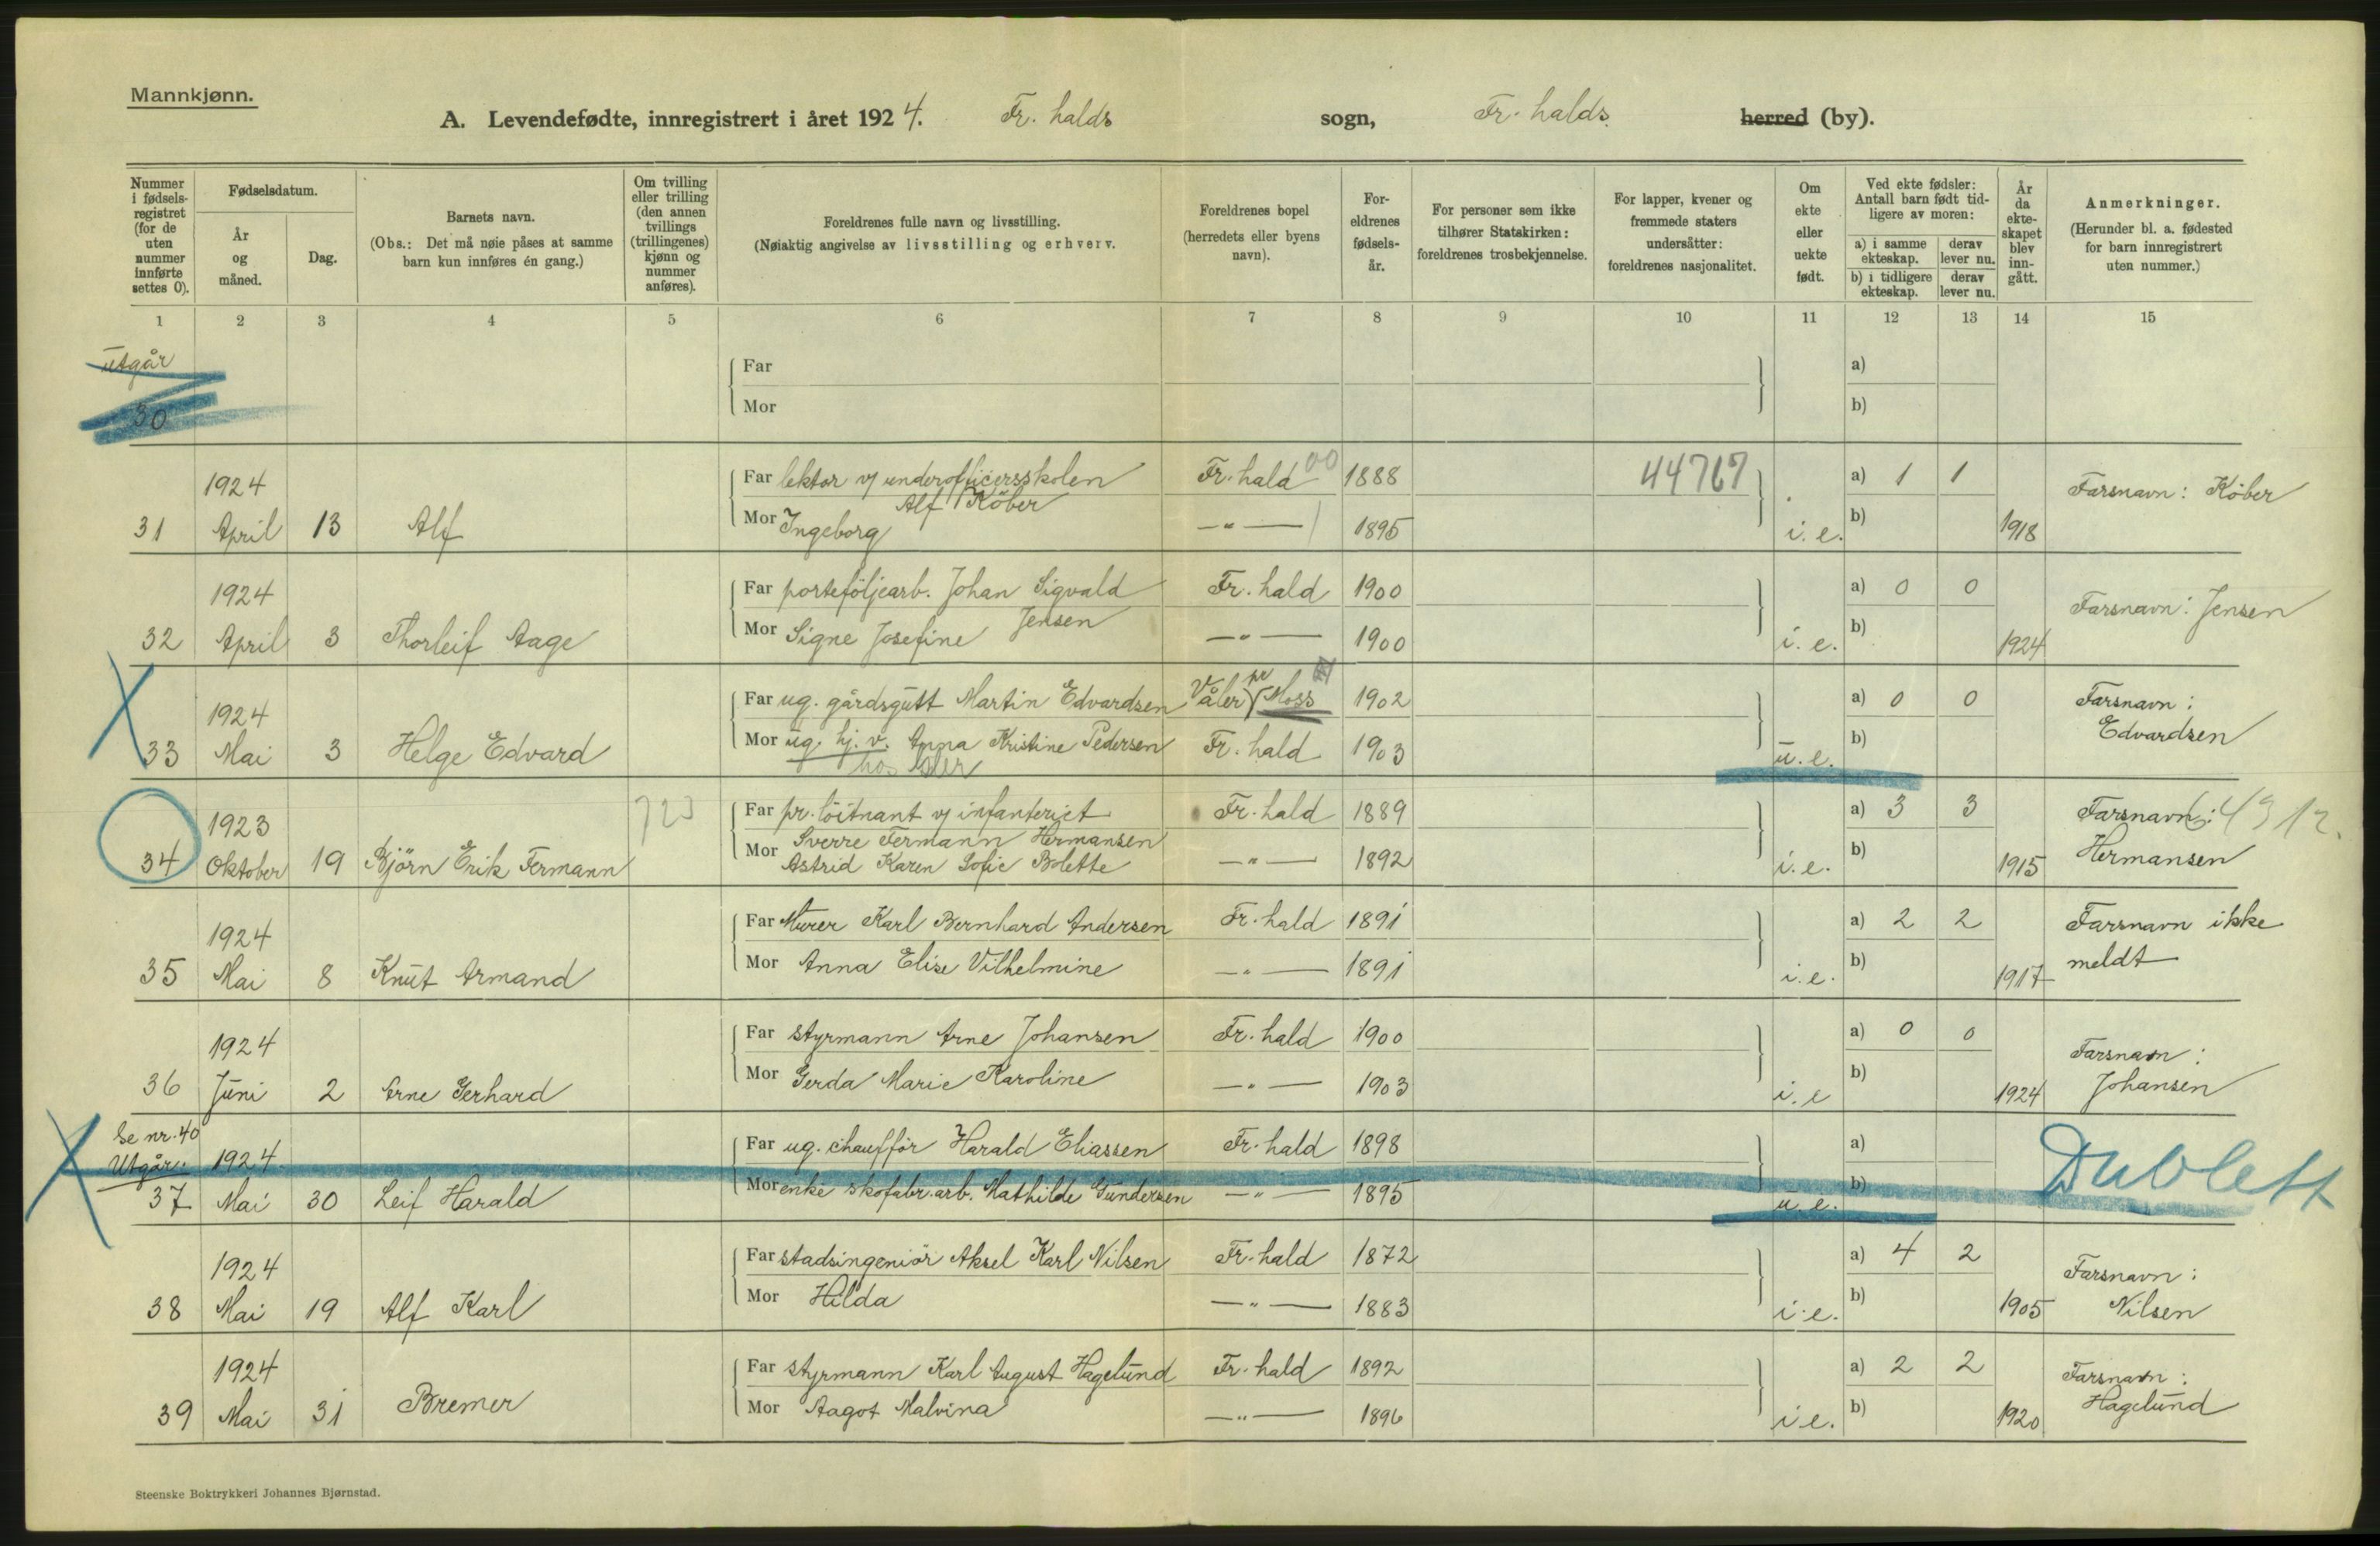 Mannkjønn.
A. Levendefødte, innregistrert i året 1924. Fr. halds sogn, Fr. halds herred (by).
Nummer i fødsels-registret (for de uten nummer innførte settes 0).
Fødselsdatum.
År og måned.
Dag.
Barnets navn.
(Obs.: Det må nøie påses at samme barn kun innføres én gang.)
Om tvilling eller trilling (den annen tvillings (trillingenes) kjønn og nummer anføres).
Foreldrenes fulle navn og livsstilling.
(Nøiaktig angivelse av livsstilling og erhverv.
Foreldrenes bopel (herredets eller byens navn).
For-eldrenes fødsels-år.
For personer som ikke tilhører Statskirken: foreldrenes trosbekjennelse.
For lapper, kvener og fremmede staters undersåtter: foreldrenes nasjonalitet.
Om ekte eller uekte født.
Ved ekte fødsler: Antall barn født tid-ligere av moren:
a) i samme ekteskap.
derav lever nu.
b) i tidligere ekteskap.
derav lever nu.
År da ekte-skapet blev inn-gått.
Anmerkninger.
(Herunder bl. a. fødested for barn innregistrert uten nummer.)
1 2 3 4 5 6 7 8 9 10 11 12 13 14 15
Utgår
Far a)
30
Mor b)
1924
Far lektor v/ underofficersskolen Fr. hald 00 1888 44767 a) 1 1 Farsnavn: Köber
Alf Köber
31 April 13 Alf Mor Ingeborg —"— 1895 i. e. b) 1918
1924
Far porteföljearb. Johan Sigvald Fr. hald 1900 a) 0 0 Farsnavn: Jensen
Jensen
32 April 3 Thorleif Aage Mor Signe Josefine —"— 1900 i. e. b) 1924
1924
Far ug. gårdsgutt Martin Edvardsen Våler pr Moss 1902 a) 0 0 Farsnavn:
33 Mai 3 Helge Edvard Mor ug. hj. v. Anna Kristine Pedersen Fr. hald 1903 u. e. b) Edvardsen
hos
1923
723 Far pr. löitnant v/ infanteriet Fr. hald 1889 a) 3 3 Farsnavn:
Sverre Fermann Hermansen
34 Oktober 19 Björn Erik Fermann Mor Astrid Karen Sofie Bolette —"— 1892 i. e. b) 1915 Hermansen
1924
Far Murer Karl Bernhard Andersen Fr. hald 1891 a) 2 2 Farsnavn ikke
35 Mai 8 Knut Armand Mor Anna Elise Vilhelmine —"— 1891 i. e. b) 1917 meldt
1924
Far styrmann Arne Johansen Fr. hald 1900 a) 0 0 Farsnavn:
36 Juni 2 Arne Gerhard Mor Gerda Marie Karoline —"— 1903 i. e b) 1924 Johansen
Se nr. 40
Utgår. 1924
Far ug. chauffør Harald Eliassen Fr. hald 1898 a) Dublett
37 Mai 30 Leif Harald Mor enke skofabr. arb. Mathilde Gundersen —"— 1895 u. e. b)
1924
Far stadsingeniör Aksel Karl Nilsen Fr. hald 1872 a) 4 2 Farsnavn:
38 Mai 19 Alf Karl Mor Hilda —"— 1883 i. e. b) 1905 Nilsen
1924
Far styrmann Karl August Hagelund Fr. hald 1892 a) 2 2 Farsnavn:
39 Mai 31 Bremer Mor Aagot Malvina —"— 1896 i. e. b) 1920 Hagelund
Steenske Boktrykkeri Johannes Bjørnstad.